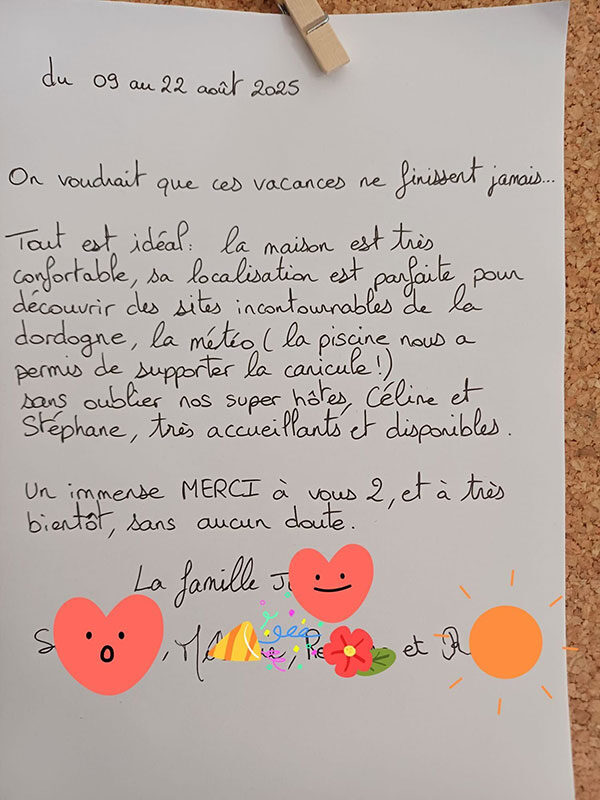 du 09 au 22 août 2025
On voudrait que ces vacances ne finissent jamais...
Tout est idéal: la maison est très
confortable, sa localisation est parfaite pour
découvrir des sites incontournables de la
dordogne, la météo ( la piscine nous a
permis de supporter la canicule !)
sans oublier nos super hôtes, Céline et
Stéphane, très accueillants et disponibles.
Un immense MERCI à vous 2, et à très
bientôt, sans aucun doute.
La famille
et